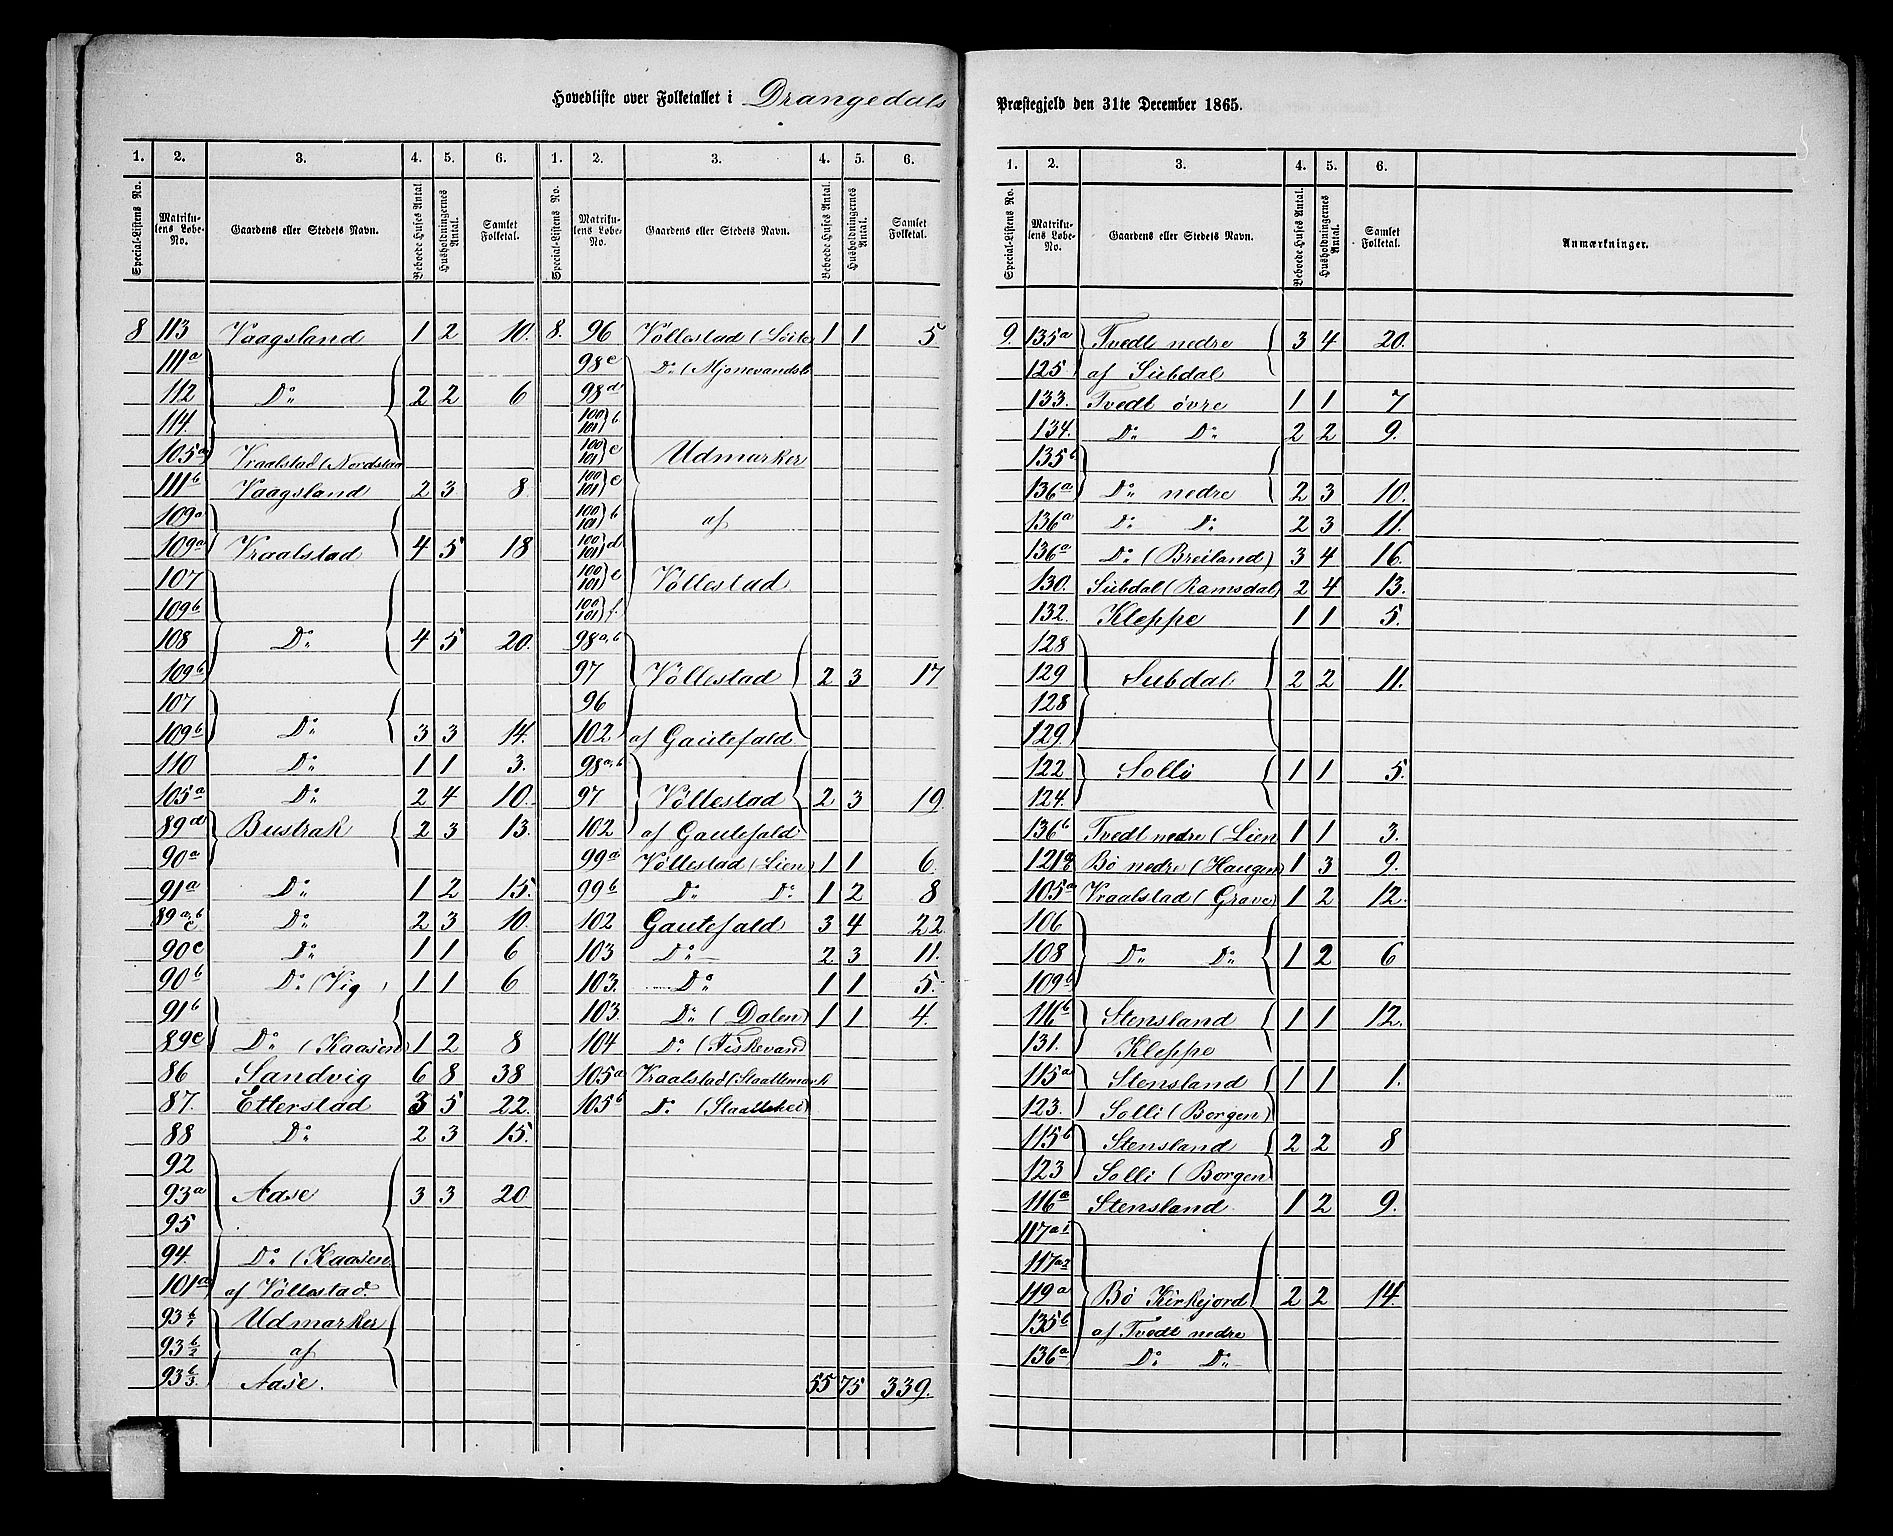 Hovedliste over Folketallet i Drangedals
1. 2. 3. 4. 5. 6. 1. 2. 3. 4. 5. 6.
Special-Listens No. Matrikulens Løbe-No. Gaardens eller Stedets Navn. Beboede Huses Antal. Husholdningernes Antal. Samlet Folketal. Special-Listens No. Matrikulens Løbe-No. Gaardens eller Stedets Navn. Beboede Huses Antal. Husholdningernes Antal. Samlet Folketal.
8 113 Vaagsland 1 2 10.
111a
112 Do 2 2 6
114.
105a Vraalstad (Nordstaa
111b Vaagsland 2 3 8
109a
109a Vraalstad 4 5 18
107
109b
108 Do 4 5 20.
109b
107
109b Do 3 3 14.
110 Do 1 1 3.
105a Do 2 4 10.
89d Bustrak 2 3 13.
90a
91a Do 1 2 15.
89a,b c Do 2 3 10.
90c Do 1 1 6
90b Do (Vig ) 1 1 6
91b
89e Do (Kaasen) 1 2 8
86 Sandvig 6 8 38
87. Etterstad 3 5 22.
88 Do 2 3 15.
92
93a Aase 3 3 20
95
94. Do (Kaasen
101a af Völlestad.
93b/1 Udmarker
93b/2 af
93b/3. Aase.
8. 96 Völlestad (Löite 1 1 5
98c Do (Mjonevandsli
98d
100 101 b
100 101 c Udmarker
100 101 e
100 101 b af
100 101 d
100 101 e Völlestad
100 101 f.
98a,b
97 Völlestad 2 3 17
96
102 af Gautefald
98a,b
97 Völlestad 2 3 19.
102 af Gautefald
99a Völlestad (Lien) 1 1 6
99b Do Do 1 2 8
102 Gautefald 3 4 22.
103 Do 2 3 11.
103. Do 1 1 5.
103. Do (Dalen) 1 1 4.
104 Do (Fiskevand
105a Vraalstad (Staattemark
105b Do (Staattehei)
55 75 339.
Præstegjeld den 31te December 1865.
1. 2. 3. 4. 5. 6.
Special-Listens No. Matrikulens Løbe-No. Gaardens eller Stedets Navn. Beboede Huses Antal. Husholdningernes Antal. Samlet Folketal. Anmærkninger.
9. 135a Tvedt nedre 3 4 20.
125 af Subdal
133. Tvedt övre 1 1 7
134. Do Do 2 2 9.
135b
136a Do nedre 2 3 10.
136a Do Do 2 3 11.
136a Do (Breiland) 3 4 16.
130. Subdal (Ramsdal) 2 4 13.
132. Kleppe 1 1 5.
128
129 Subdal 2 2 11.
128
129.
122 Solli 1 1 5.
124.
136b Tvedt nedre (Lien 1 1 3.
121a Bö nedre (Haugen) 1 3 9.
105a Vraalstad (Grave) 1 2 12.
106
108 Do Do 1 2 6
109b
116b Stensland 1 1 12.
131. Kleppe
115a Stensland 1 1 1.
123. Solli (Borgen)
115b Stensland 2 2 8
123 Solli (Borgen
116a Stensland 1 2 9.
117a1
117a2
119a Bö Kirkejord 2 2 14.
135b af Tvedt nedre
136a Do Do